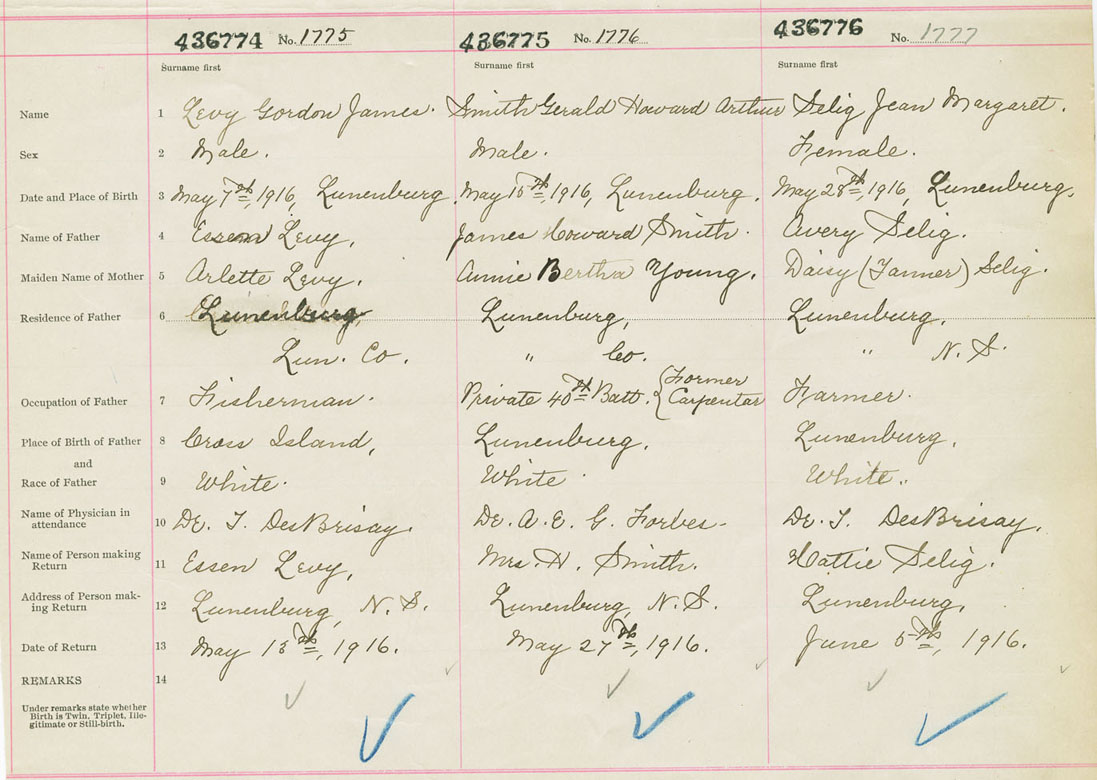 436774 No. 1775 436775 No. 1776 436776 No. 1777
Surname first Surname first Surname first
Name 1 Levy Gordon James. Smith Gerald Howard Arthur Selig Jean Margaret.
Sex 2 Male. Male. Female.
Date and Place of Birth 3 May 7th, 1916, Lunenburg. May 10th 1916, Lunenburg. May 28th, 1916, Lunenburg.
Name of Father 4 Essen Levy, James Howard Smith. Avery Selig.
Maiden Name of Mother 5 Arlette Levy. Annie Bertha Young. Daisy (Tanner) Selig.
Residence of Father 6 Lunenburg, Lunenburg, Lunenburg,
Lun. Co. " Co. " N. S.
Occupation of Father 7 Fisherman. Private 40th Batt. {Former Carpentar Farmer.
Place of Birth of Father 8 Cross Island, Lunenburg, Lunenburg,
and
Race of Father 9 White. White White.
Name of Physician in
attendance 10 Dr. T. DesBrisay. Dr. A. E. G. Forbes. Dr. T. DesBrisay.
Name of Person making
Return 11 Essen Levy, Mrs. H. Smith. Hattie Selig.
Address of Person mak-
ing Return 12 Lunenburg, N. S. Lunenburg, N. S. Lunenburg,
Date of Return 13 May 13th, 1916. May 27th, 1916. June 5th, 1916.
REMARKS 14
Under remarks state whether
Birth is Twin, Triplet, Ille-
gitimate or Still-birth.